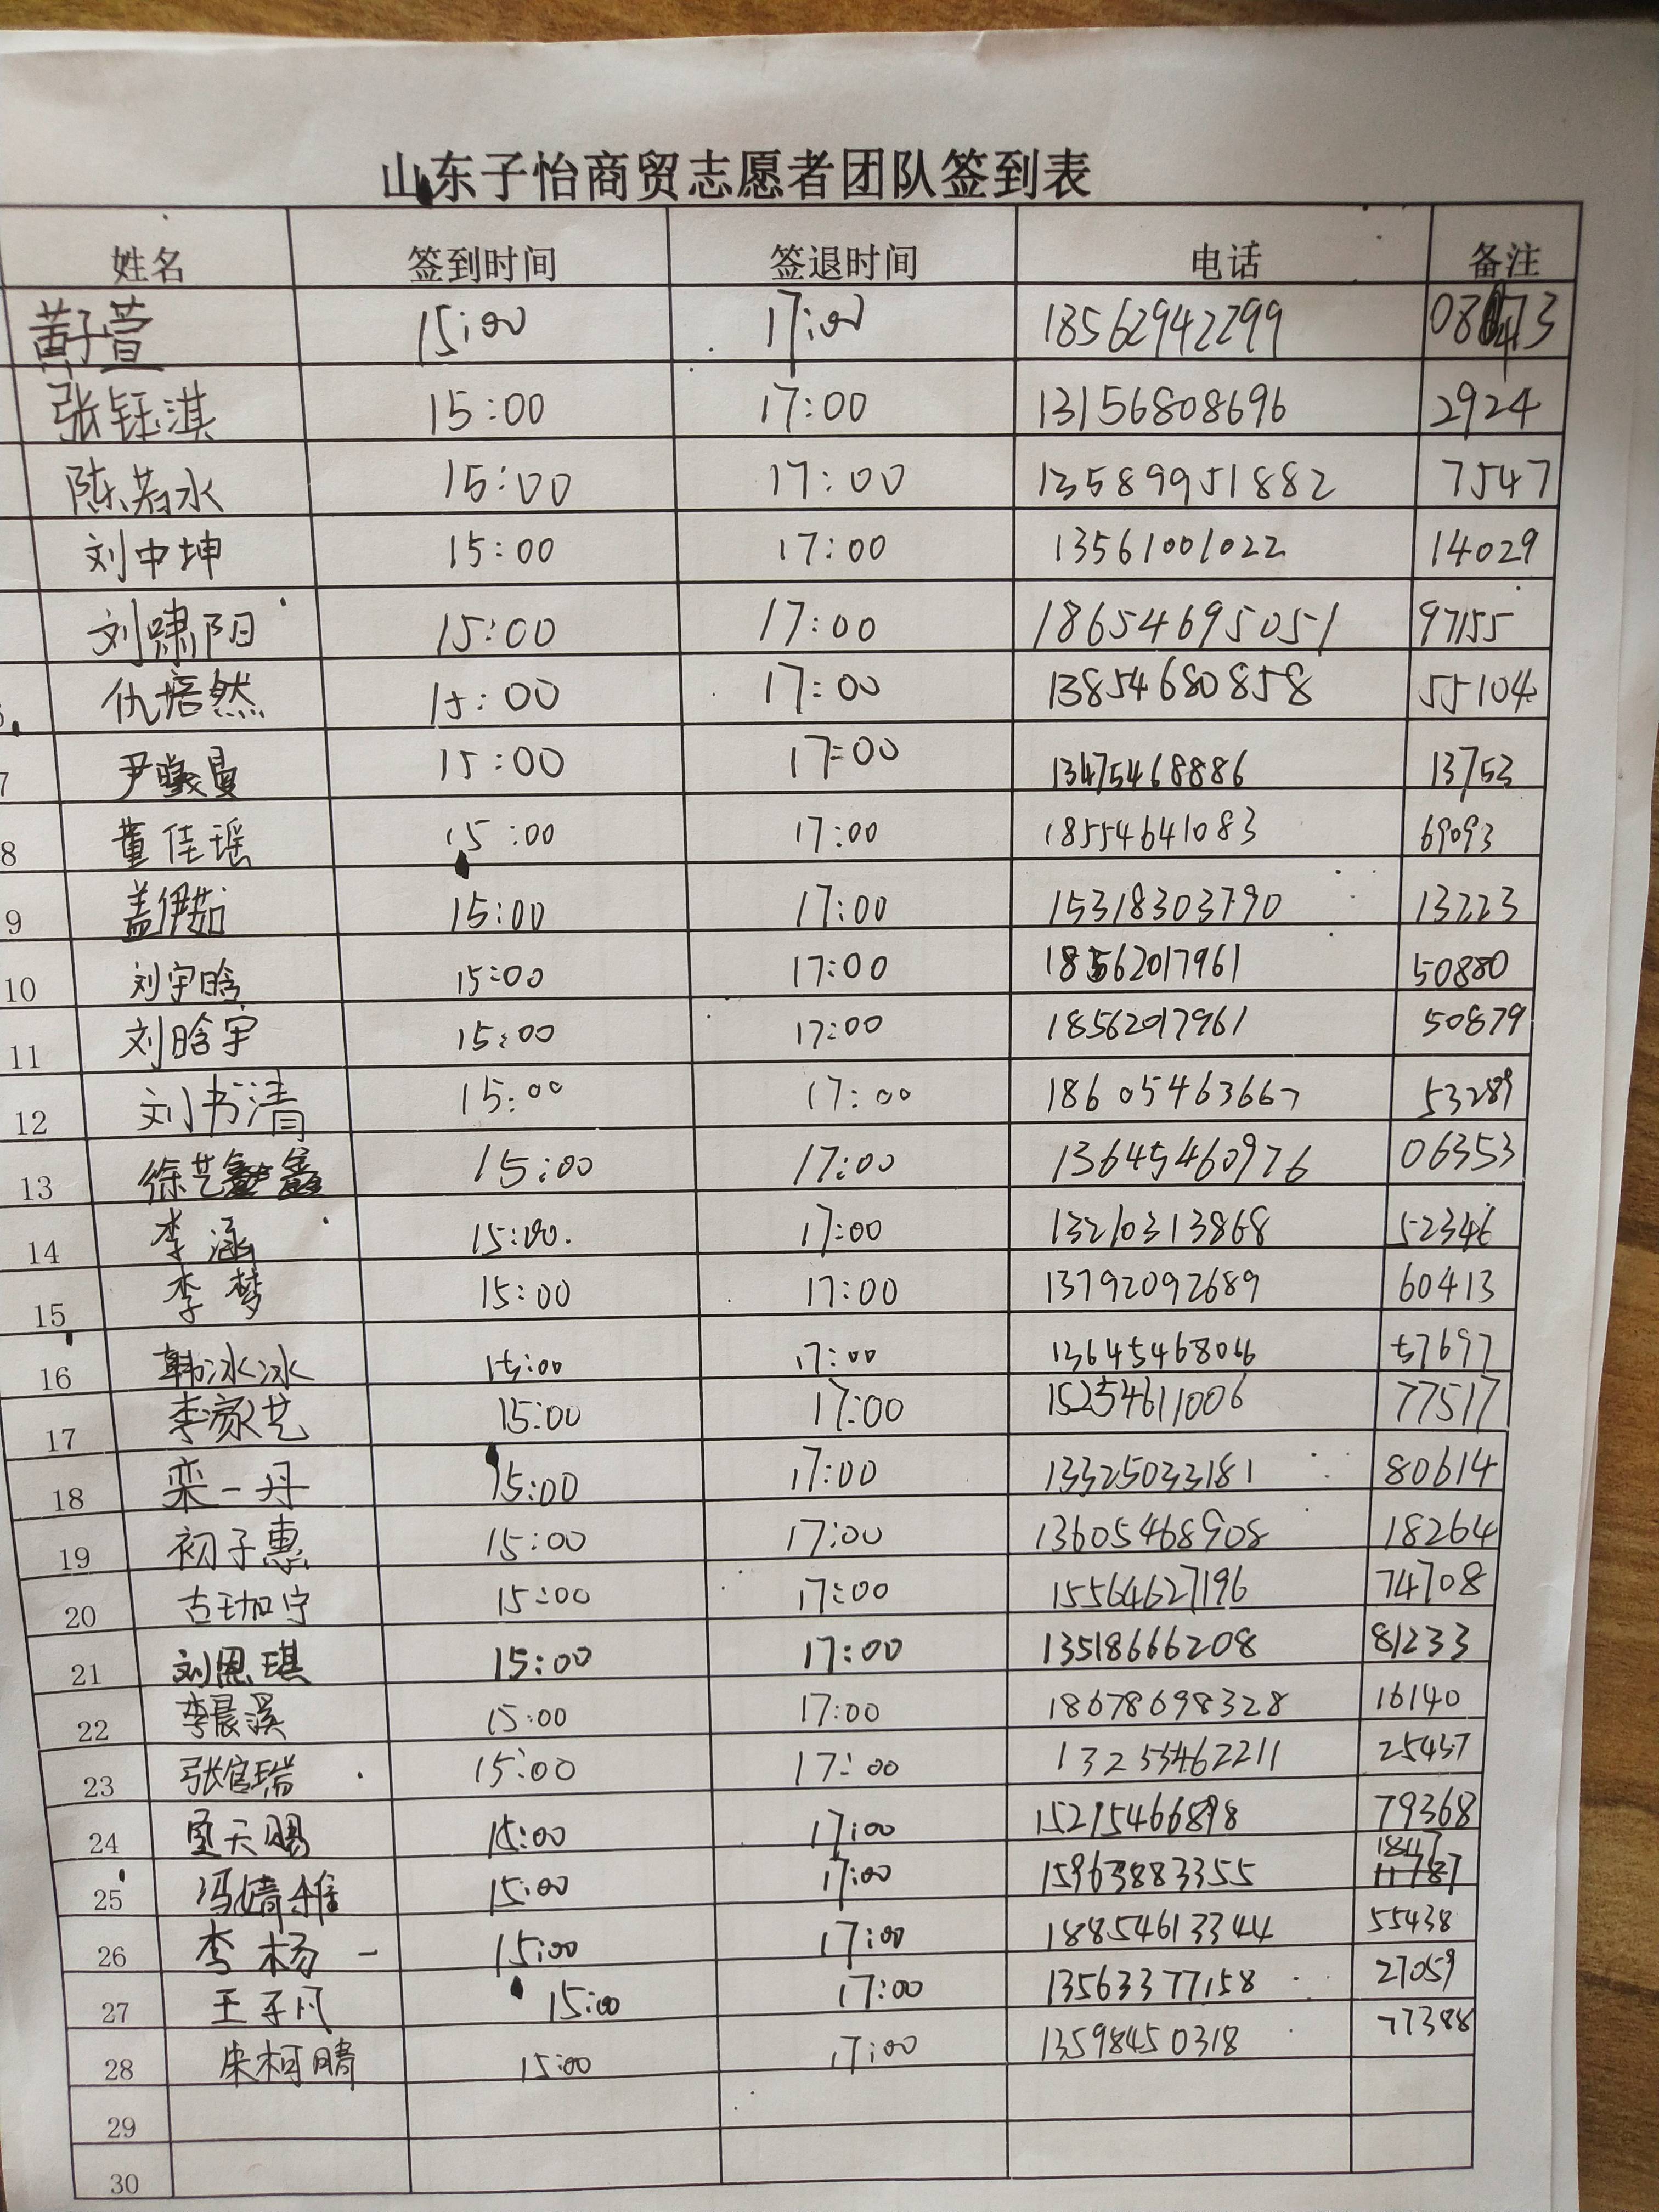 山东子怡商贸志愿者团队签到表
姓名 签到时间 签退时间 电话 备注
黄子萱 15:00 17:00 18562942299
张钰淇 15:00 17:00 13156808696 2924
陈若水 15:00 17:00 13589951882 7547
刘中坤 15:00 17:00 13561001022 14029
刘啸阳 15:00 17:00 18654695051 97155
仇培然 15:00 17:00 13854680858 55104
7 尹曦曼 15:00 17:00 13475468886 13753
8 董佳瑶 15:00 17:00 18554641083 69093
9 盖伊茹 15:00 17:00 15318303790 13223
10 刘宇晗 15:00 17:00 18562017961 50880
11 刘晗宇 15:00 17:00 18562017961 50879
12 刘书清 15:00 17:00 18605463667 53289
13 徐艺鑫 15:00 17:00 13645460976 06353
14 李涵 15:00. 17:00 13210313868 52346
15 李梦 15:00 17:00 13792092689 60413
16 韩冰冰 15:00 17:00 13645468066 57697
17 李家艺 15:00 17:00 15254611006 77517
18 栾一丹 15:00 17:00 13325033181 80614
19 初子惠 15:00 17:00 13605468908 18264
20 古珈宁 15:00 17:00 15564627196 74708
21 刘恩琪 15:00 17:00 13518666208 81233
22 李晨溪 15:00 17:00 18678698328 16140
23 张官瑞 15:00 17:00 13253462211 25437
24 天赐 15:00 17:00 15215466898 79368
25 冯婧雅 15:00 17:00 15963883355
26 李杨一 15:00 17:00 18854613344 55438
27 王子凡 15:00 17:00 13563377158 27059
28 柯晴 15:00 17:00 13598450318 77388
29
30